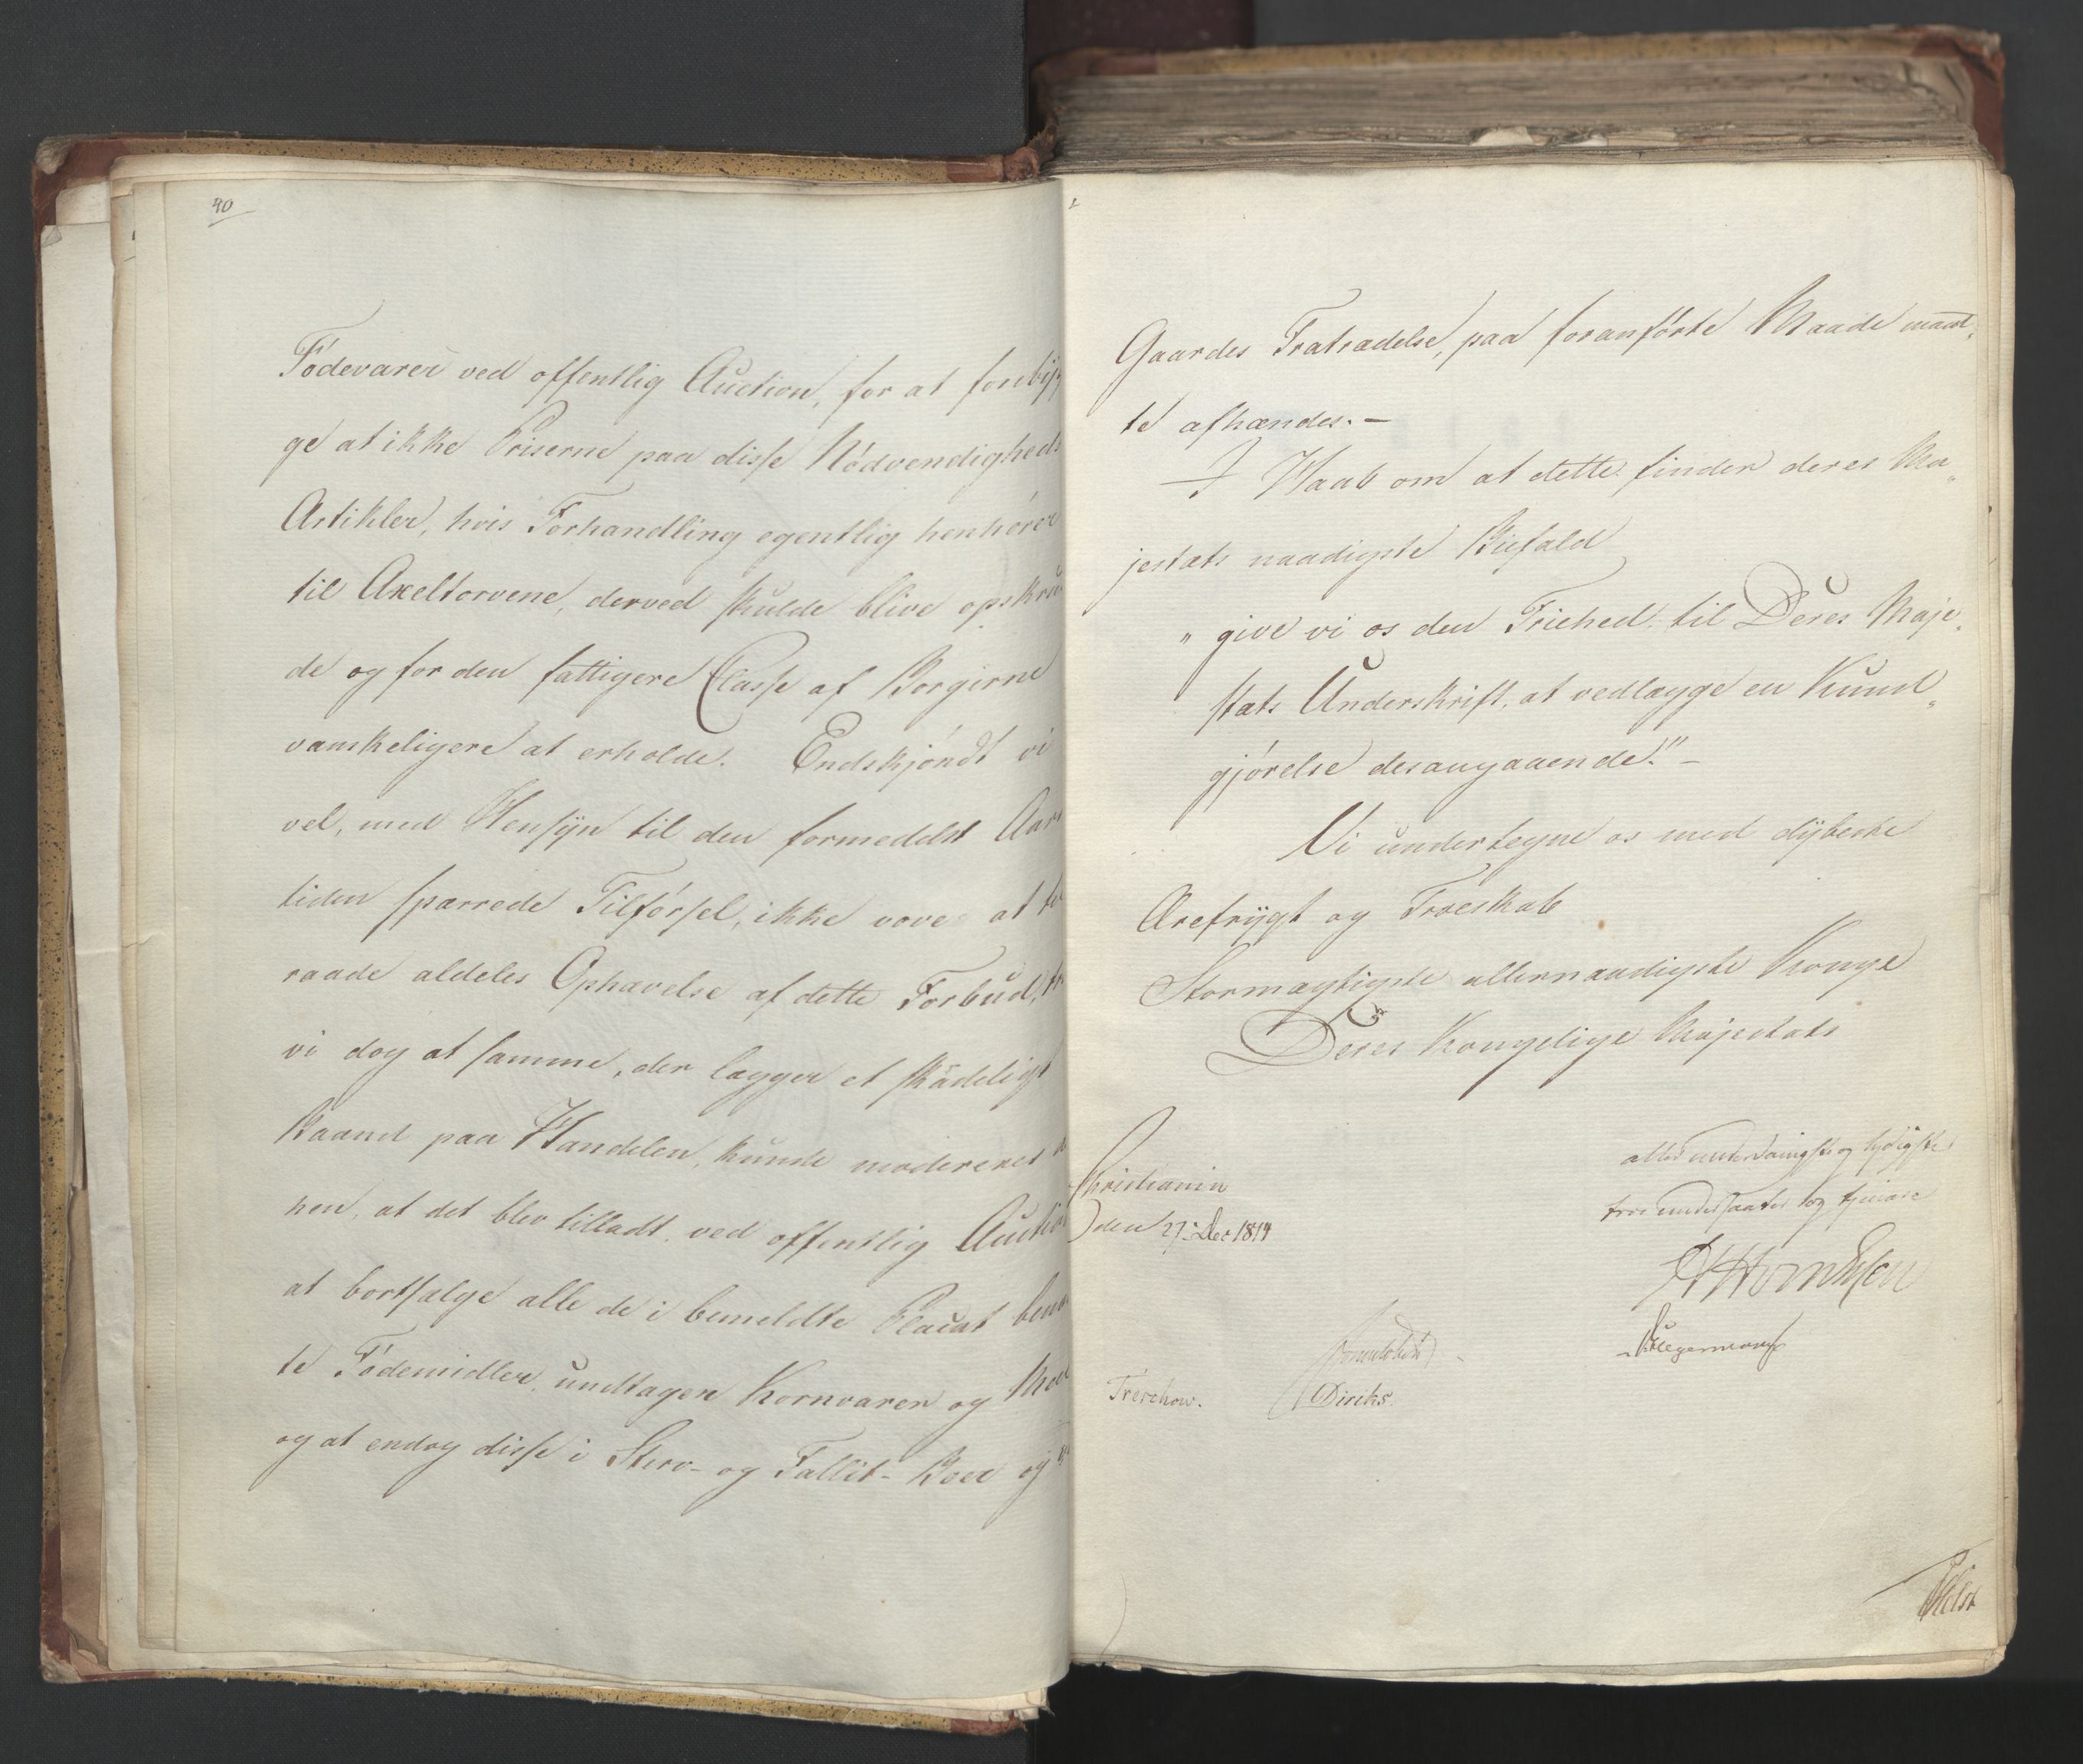 40
Födevarer ved offentlig Auction, for at forebyg
ge at ikke Priserne paa disse Nödvendigheds
Artikler, hvis Forhandling egentlig henhörer
til Axeltorvene, derved skulde blive opskru
de og for den fattigere Classe af Borgerne
vanskeligere at erholde. Endskjöndt vi
vel, med Hensyn til den formedelst Aars
tiden sparrede Tilförsel, ikke vove at til
raade aldeles Ophævelse af dette Forbud,
vi dog at samme, der lægger et skadeligt
Baand paa Handelen, kunde modereres
hen, at det blev tilladt, ved offentlig Auction
at bortsælge alle de i bemeldte Placat
te Födemidler, undtagen Kornvarer og Meel
og at endog disse i Sterv- og Fallit-Boer og
Gaardes Fratrædelse, paa foranförte Maade maat,
te afhændes.—
I Haab om at dette finder deres Ma„
jestæts naadigste Biefald
„ give vi os den Friehed, til Deres Maje„
stæts Underskrift, at vedlægge en Kund„
gjörelse desangaaende."—
Vi undertegne os med dybeste
Ærefrygt og Troeskab
Stormægtigste allernaadigste Konge
Deres Kongelige Majestæts
Christiania
den 27 Dec 1814
allerunderdanigste og lydigste
troe undersaatter og tjenere
Hegermann
Treschow.
Diriks